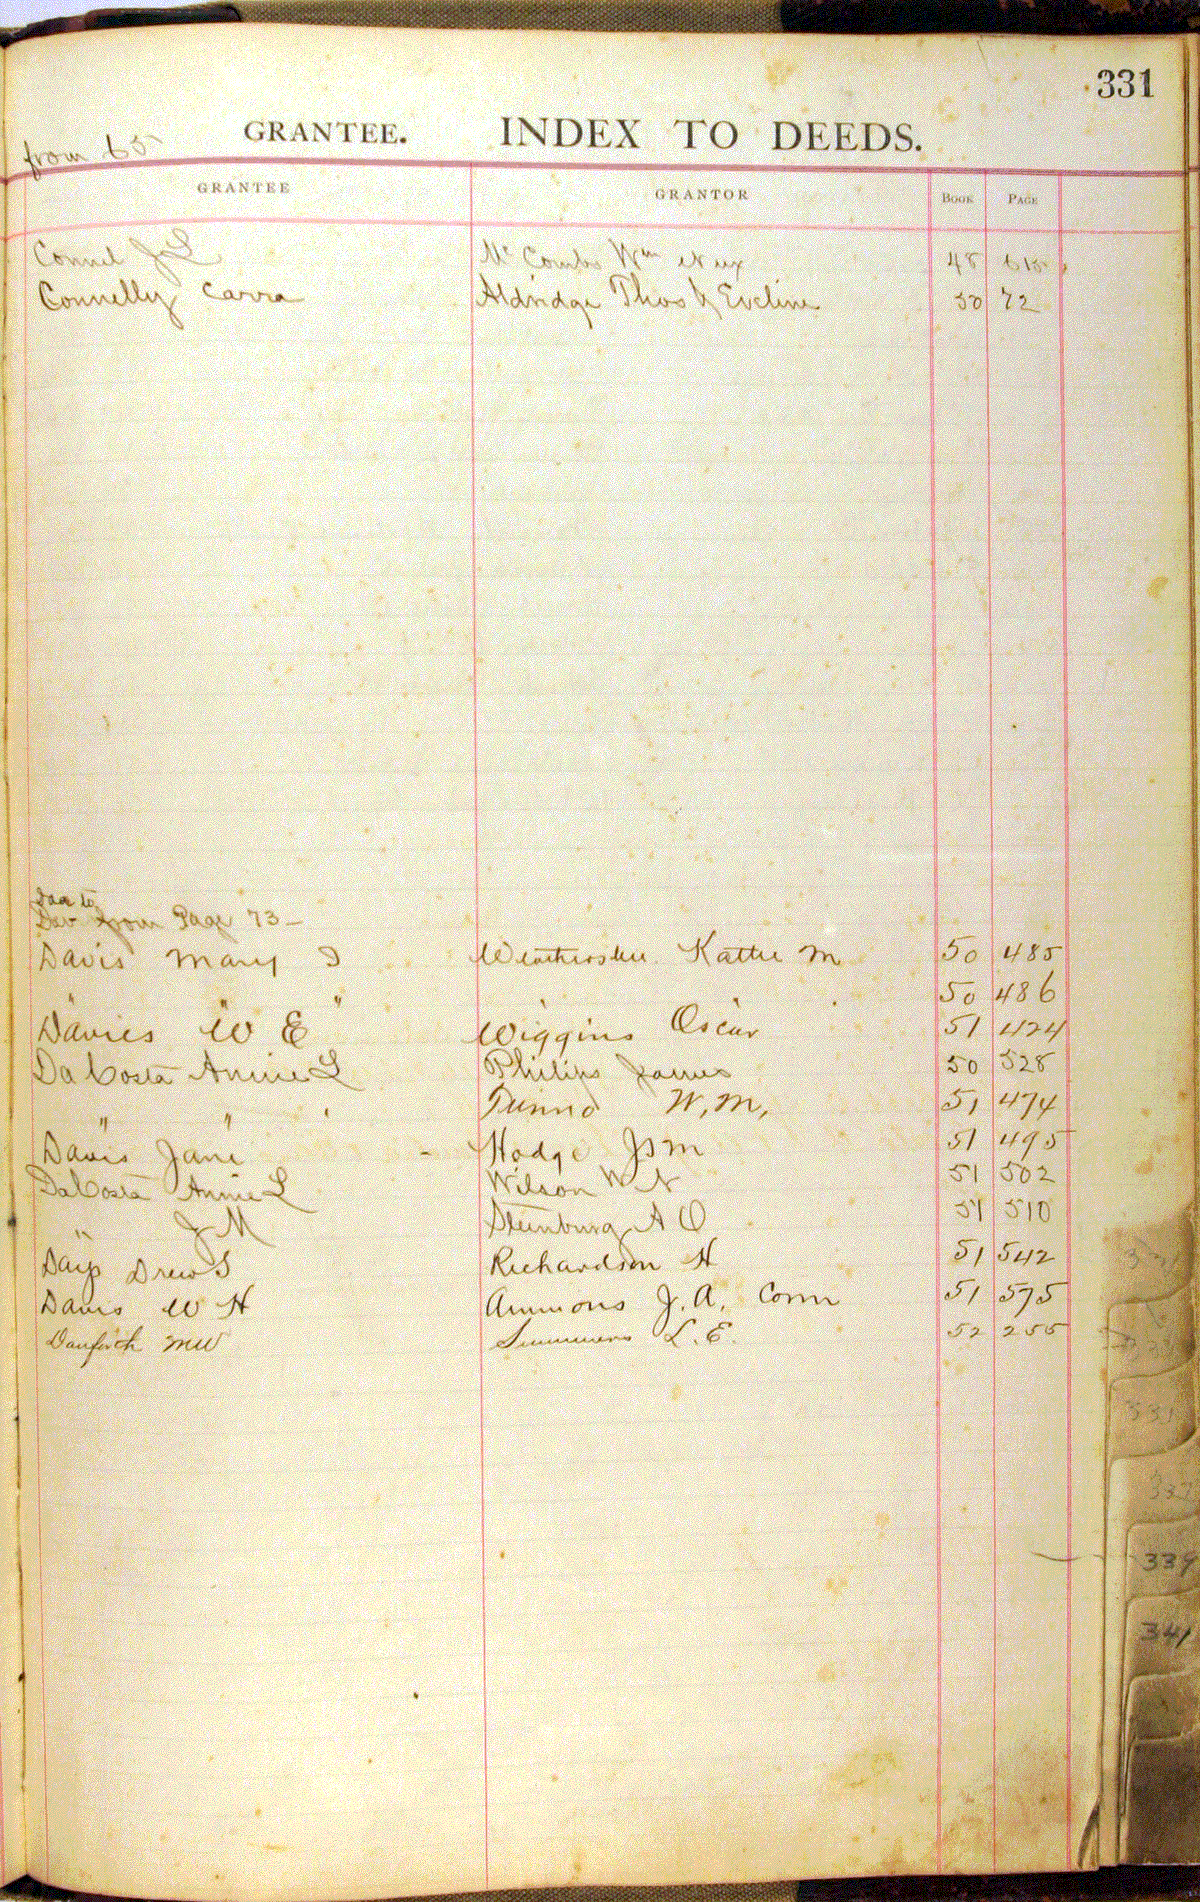 331
GRANTEE. INDEX TO DEEDS.
from 65
GRANTEE GRANTOR BOOK PAGE
Connel J L Mc Combs Wm et ux 48 615
Connelly Carra Aldridge Thos & Eveline 50 72
Daa to
Dav from Page 73-
Davis Mary I Kattie M 50 485
" " " " " 50 486
Davies W E Wiggins Oscar 51 424
DaCosta Annie L Philips James 50 528
" " " Tunno W. M. 51 474
Davis Jane - Hodge Js M 51 495
DaCosta Annie L Wilson W N 51 502
" J M Steinburg A O 51 510
Days Drew S Richardson H 51 542
Davis W H Ammons J. A. Comr 51 575
Danforth M W Summers L. E. 52 255
331
333
335
337
339
341